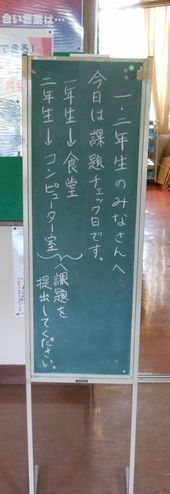 合い言葉は…
できる!
一・二年生のみなさんへ
今日は課題チェック日です。
一年生→食堂
二年生→コンピューター室
へ課題を
提出してください。